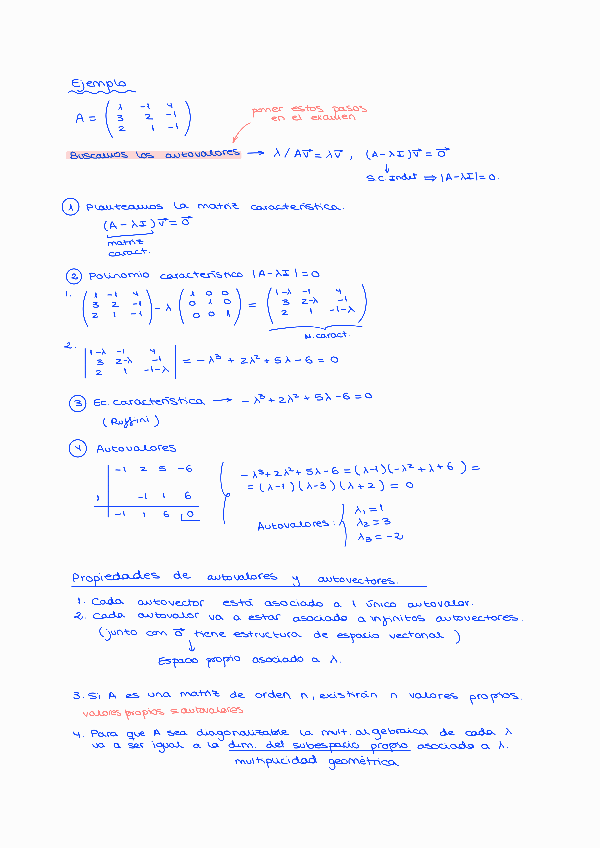 Ejemplo
A = ( 1 -1 4
3 2 -1
2 1 -1 )
poner estos pasos
en el examen
Buscamos los autovalores → λ / Av⃗ = λv⃗ , (A-λI)v⃗ = 0⃗
↓
S.C. Indet ⇒ |A-λI| = 0.
1 Planteamos la matriz característica.
(A - λI)v⃗ = 0⃗
matriz
caract.
2 Polinomio característico |A-λI| = 0
1. ( 1 -1 4 / 3 2 -1 / 2 1 -1 ) - λ ( 1 0 0 / 0 1 0 / 0 0 1 ) = ( 1-λ -1 4 / 3 2-λ -1 / 2 1 -1-λ )
M.caract.
2. | 1-λ -1 4 / 3 2-λ -1 / 2 1 -1-λ | = -λ³ + 2λ² + 5λ - 6 = 0
3 Ec. característica → -λ³ + 2λ² + 5λ - 6 = 0
(Ruffini)
4 Autovalores
-1 2 5 -6
1 -1 1 6
-1 1 6 0
-λ³ + 2λ² + 5λ - 6 = (λ-1)(-λ² + λ + 6) =
= (λ-1)(λ-3)(λ+2) = 0
Autovalores: { λ₁ = 1
λ₂ = 3
λ₃ = -2
Propiedades de autovalores y autovectores.
1. Cada autovector está asociado a 1 único autovalor.
2. Cada autovalor va a estar asociado a infinitos autovectores.
(junto con 0⃗ tiene estructura de espacio vectorial )
↓
Espacio propio asociado a λ.
3. Si A es una matriz de orden n, existirán n valores propios.
valores propios = autovalores
4. Para que A sea diagonalizable la mult. algebraica de cada λ
va a ser igual a la dim. del subespacio propio asociado a λ.
multiplicidad geométrica